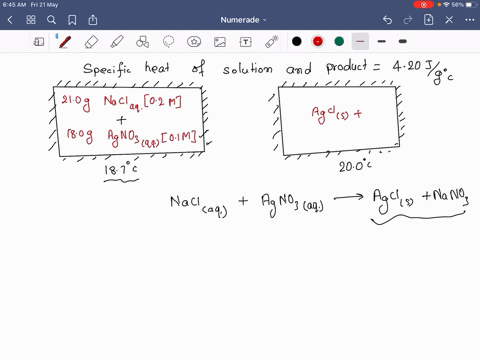 6:45 AM Fri 21 May
56%
Numerade
Specific heat of solution and product = 4.20 J/g°c
21.0g NaCl aq. [0.2 M]
+
18.0g AgNO3 (aq) [0.1M]
18.7°c
AgCl(s) +
20.0°c
NaCl (aq.) + AgNO3 (aq.) → AgCl(s) + NaNO3